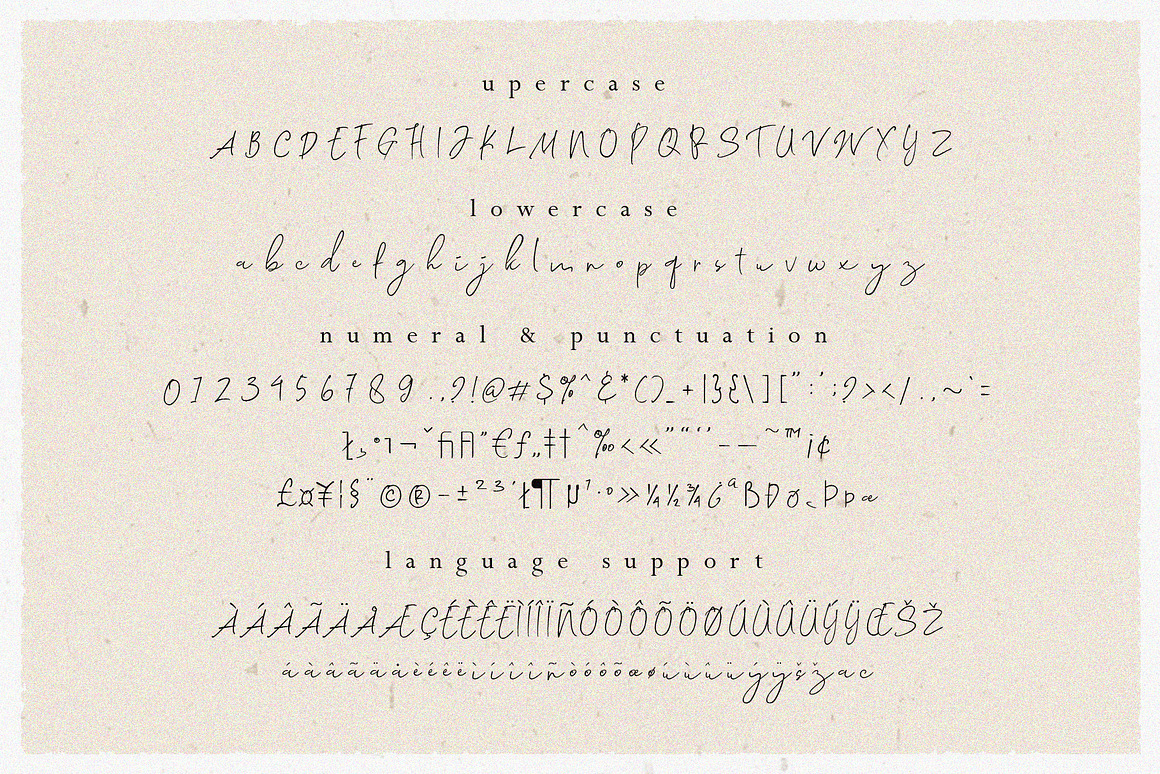 upercase
ABCDEFGHIJKLMNOPQRSTUVWXYZ
lowercase
abcdefghijklmnopqrstuvwxyz
numeral & punctuation
0123456789.,?!@#$%^&*()_+|}{\][":';?><​/.,~`=
£¤¥¦§¨©®-±²³´ł¶µ¹·º»¼½¾
language support
ÀÁÂÃÄÅÆÇÉÈÊËÌÍÎÏÑÓÒÔÕÖØÚÙÛÜÝŸŒŠŽ
áàâãäåèéêëìíîïñòóôõœøúùûüýÿšžac